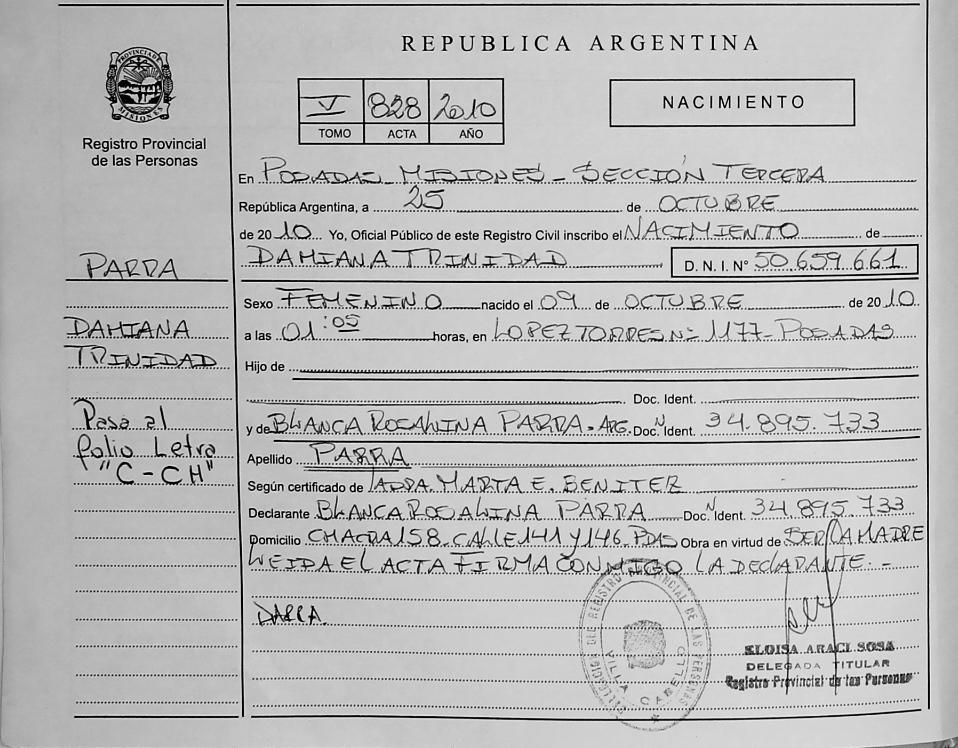 REPUBLICA ARGENTINA
PROVINCIA DE MISIONES
Registro Provincial
de las Personas
V 828 2010
TOMO ACTA AÑO
NACIMIENTO
En POSADAS - MISIONES - SECCIÓN TERCERA
República Argentina, a 25 de OCTUBRE
de 2010 Yo, Oficial Público de este Registro Civil inscribo el NACIMIENTO de
DAMIANA TRINIDAD D. N. I. N° 50.659.661
Sexo FEMENINO nacido el 09 de OCTUBRE de 2010
a las 01:05 horas, en LOPEZ TORRES N° 1177 - POSADAS
Hijo de
Doc. Ident.
y de BLANCA ROSALINA PARRA - ARG. Doc. N Ident. 34.895.733
Apellido PARRA
Según certificado de MARTA E. BENITEZ
Declarante BLANCA ROSALINA PARRA Doc. N Ident. 34.895.733
Domicilio CHACRA 158 - CALLE 141 Y 146 - PDAS Obra en virtud de SER LA MADRE
LEIDA EL ACTA FIRMA CONMIGO LA DECLARANTE.-
PARRA
PARRA
DAMIANA
TRINIDAD
Pasa al
folio Letra
"C - CH"
DELEGACION DEL REGISTRO PROVINCIAL DE LAS PERSONAS
VILLA CABELLO
ELOISA ARACI SOSA
DELEGADA TITULAR
Registro Provincial de las Personas